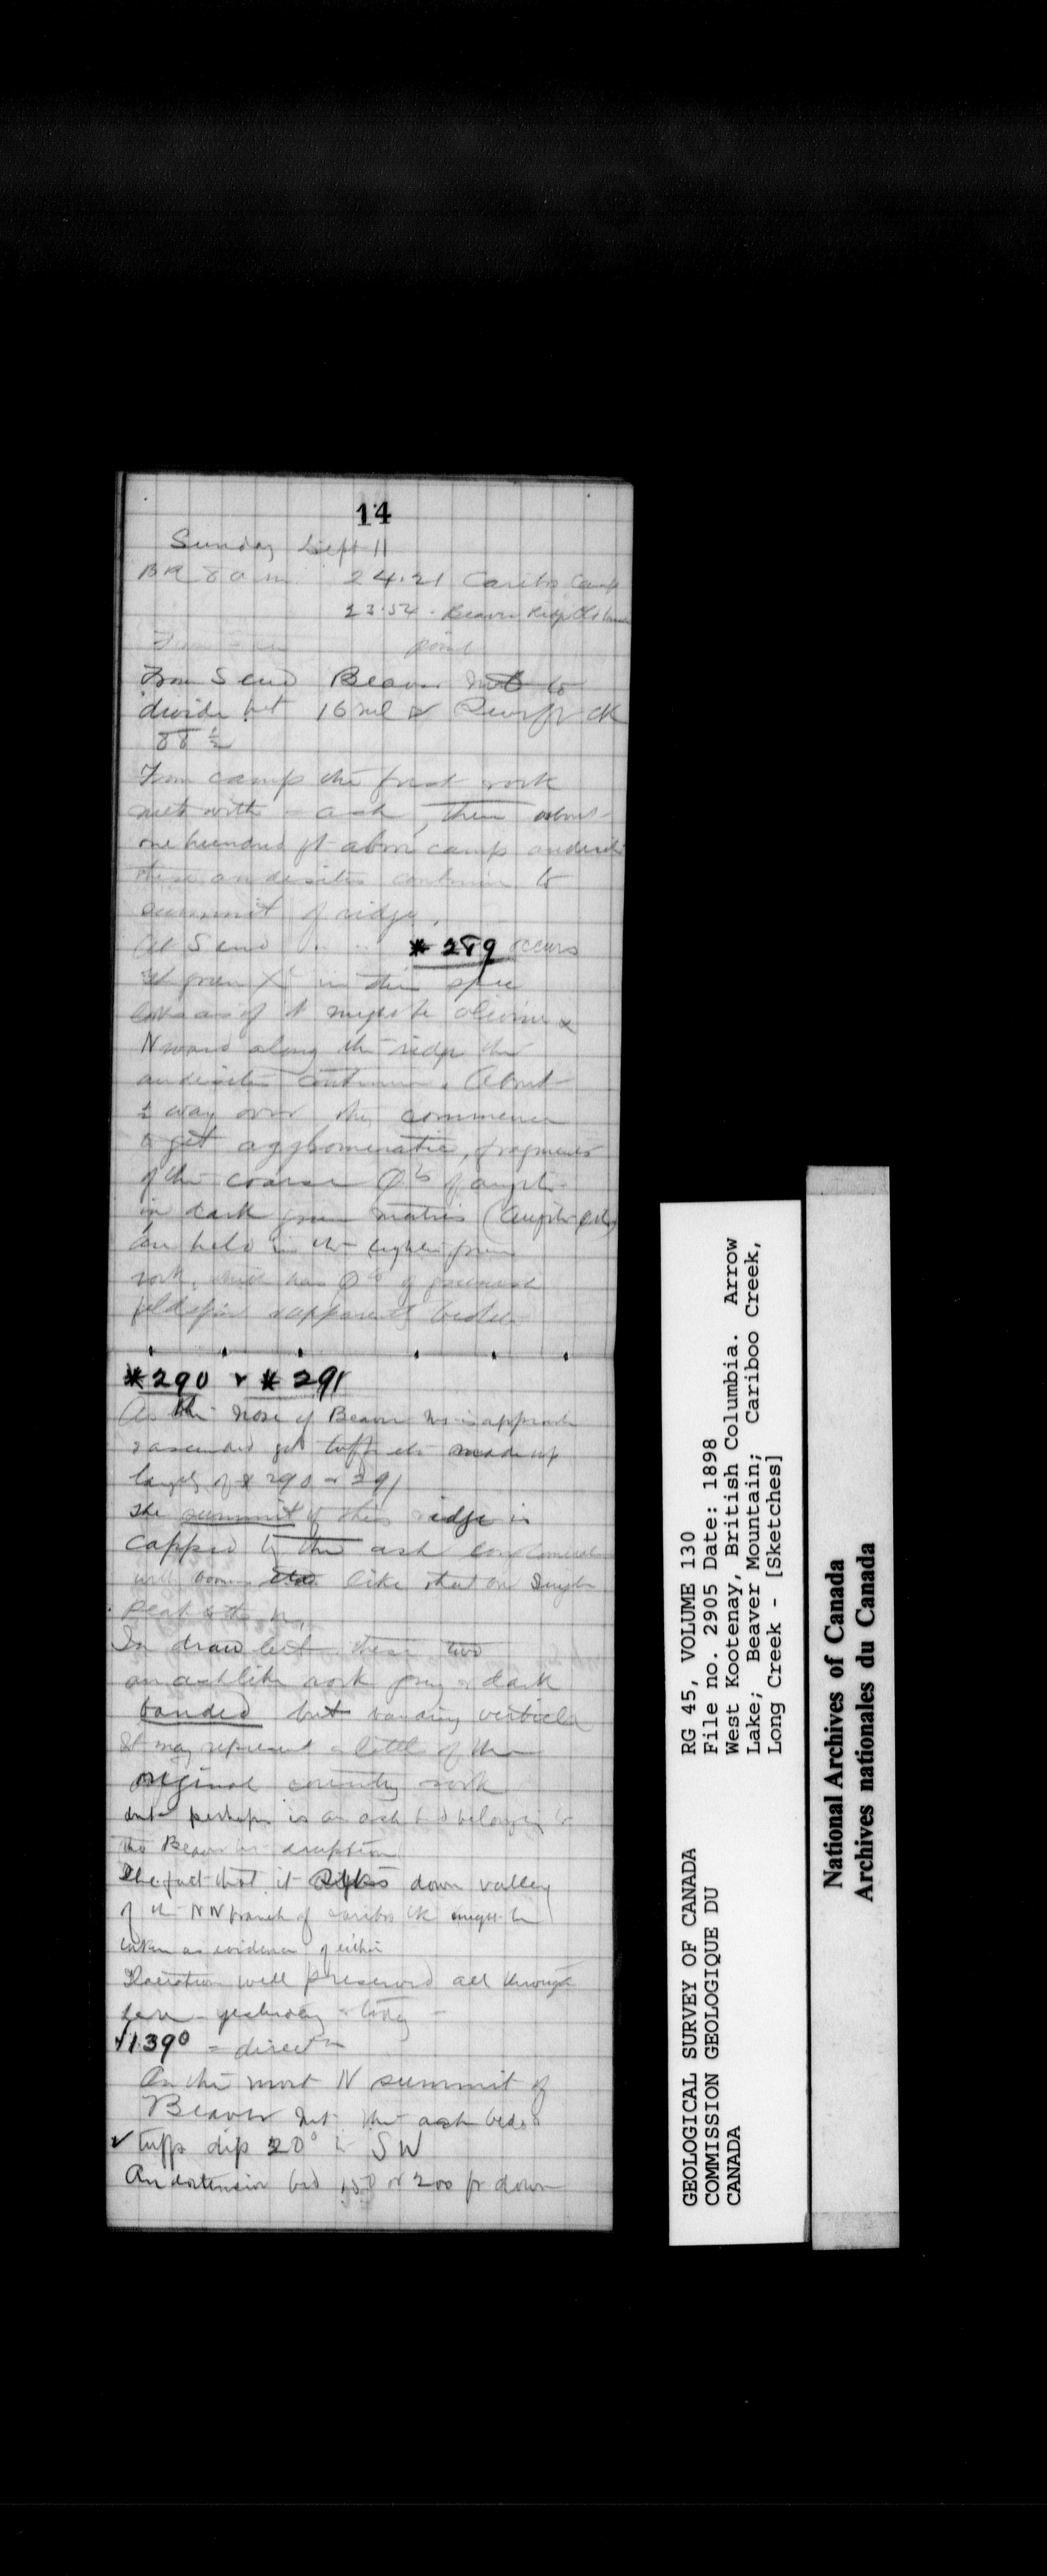 14
Sunday Sept 11
BR 8 a m 24.21 Cariboo Camp
23.54 - Beaver Ridge
point
From S end Beaver Mt to
divide bet 16 mile & ck
88 ½
From camp the first rock
met with = ash, then about
one hundred ft above camp andesite
these andesites continue to
summit of ridge.
At S end * 289 occurs
green in this spec
looks as if it might be olivine
Nward along the ridge the
andesites continue. About
½ way over they commence
to get agglomeratic, fragments
of the coarse of augite
in dark green matrix (Augite
are held in the lighter green
rock, which has of greenish
feldspar & apparently
*290 & *291
As the nose of Beaver Mt is approached
& ascended get tuffs etc made up
largely of * 290 & 291
The summit of this ridge is
capped by the ash conglomerate
with like that on
peak to the
In draw bet these two
an ashlike rock grey & dark
banded but banding vertical
It may represent a little of the
original country rock
but perhaps is an ash bed belonging to
the Beaver Mt eruption
The fact that it down valley
of the branch of Cariboo Ck might be
taken as evidence of either
well preserved all through
here - yesterday & today -
139° = direct n
On the most N summit of
Beaver Mt the ash beds &
tuffs dip 20° to SW
An bed 150 or 200 ft down
RG 45, VOLUME 130
File no. 2905 Date: 1898
West Kootenay, British Columbia. Arrow
Lake; Beaver Mountain; Cariboo Creek,
Long Creek - [Sketches]
GEOLOGICAL SURVEY OF CANADA
COMMISSION GEOLOGIQUE DU
CANADA
National Archives of Canada
Archives nationales du Canada